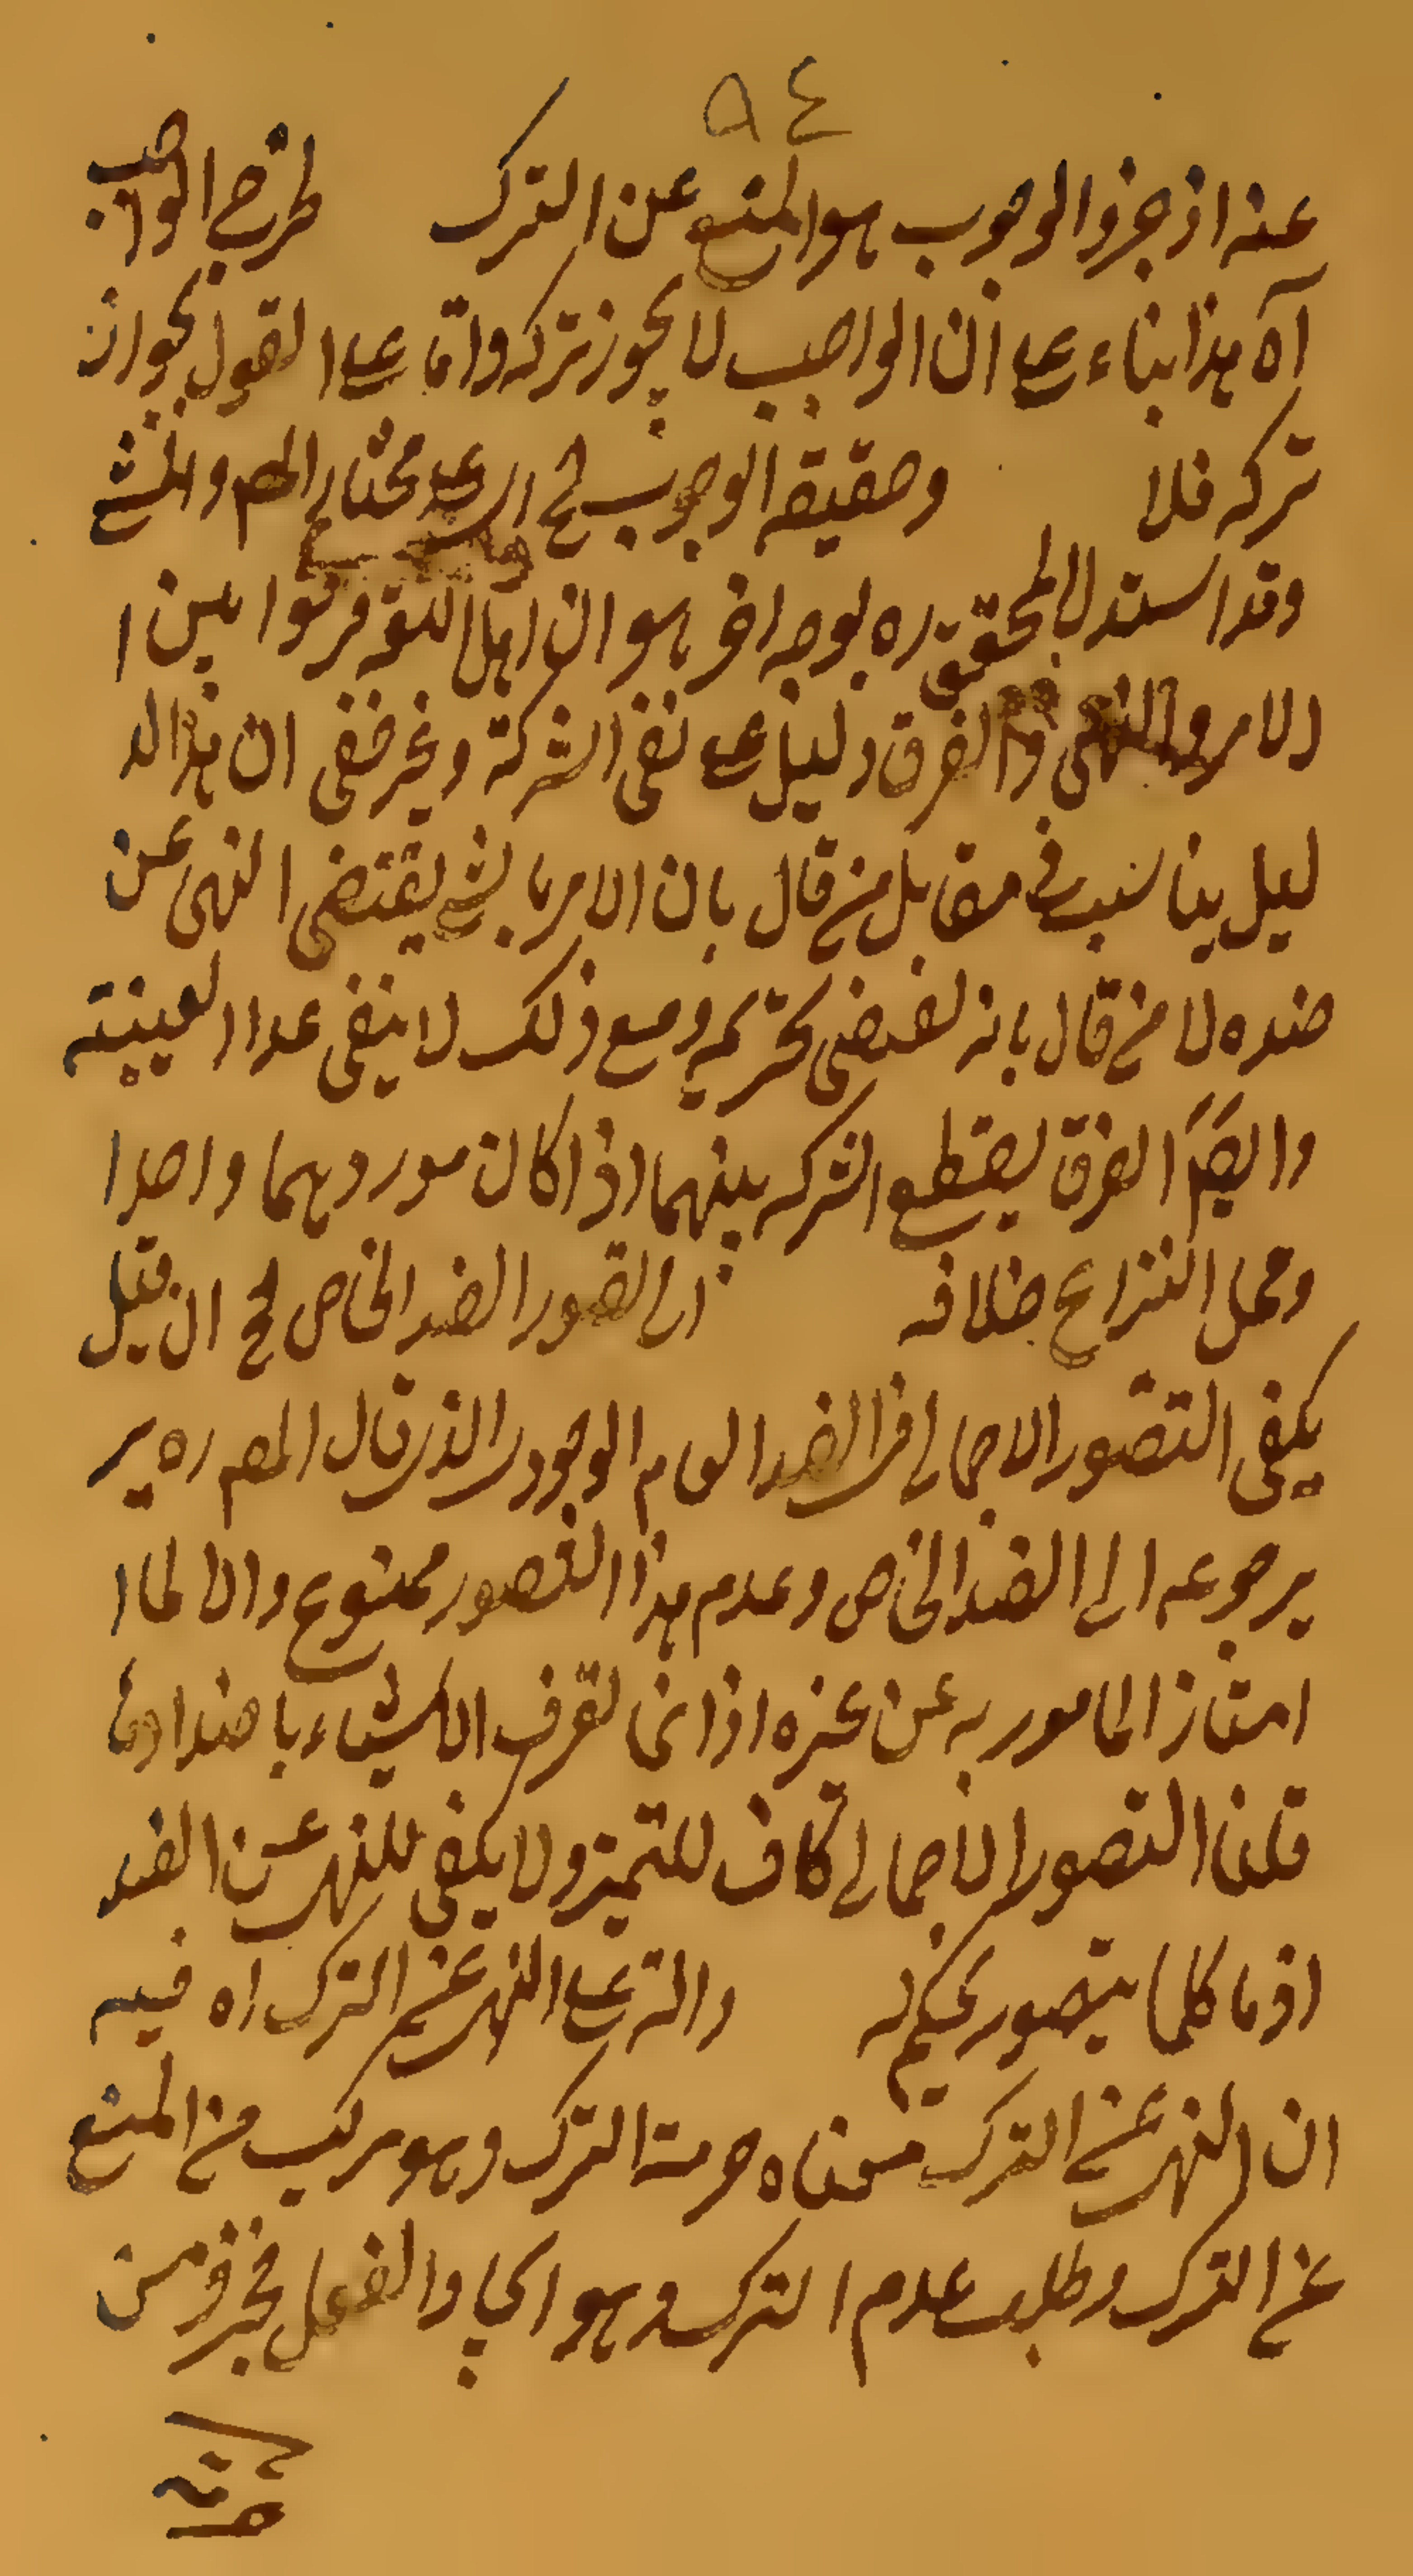 ٩٤
عنه اذ جزؤ الوجوب هو المنع عن الترك طرفى الواجب
آه هذا بناء على ان الواجب لا يجوز تركه واما على القول بجواز
تركه فلا وحقيقة الوجوب ح اى على مختار المص
وقد استدل المحقق ره بوجه اخر هو ان اهل اللغة فرقوا بين ا
الامر والنهى والفرق دليل على نفى الشركة وغير خفى ان هذا الد
ليل يناسب فى مقابل من قال بان الامر بالشئ يقتضى النهى عن
ضده لا من قال بانه يقتضى تحريمه ومع ذلك لا ينفى عدا العينية
وايضا الفرق يقطع الشركة بينهما اذا كان موردهما واحدا
ومحل النزاع خلافه اى تصور الضد الخاص لح ان قيل
يكفى التصور الاجمالى فى الضد العام الوجودى الذى قال المص ره بر
برجوعه الى الضد الخاص وعدم هذا التصور ممنوع والا لما ا
امتاز المامور به عن غيره اذ انما تعرف الاشياء باضدادها
قلنا التصور الاجمالى كاف للتميز ولا يكفى للنهى عن الضد
اذ ما كلما يتصور يحكم به والنهى عن الترك اه فيه
ان النهى عن الترك معناه حرمة الترك وهو مركب من المنع
عن الترك وطلب عدم الترك وهو ايجاد الفعل فجزؤ من